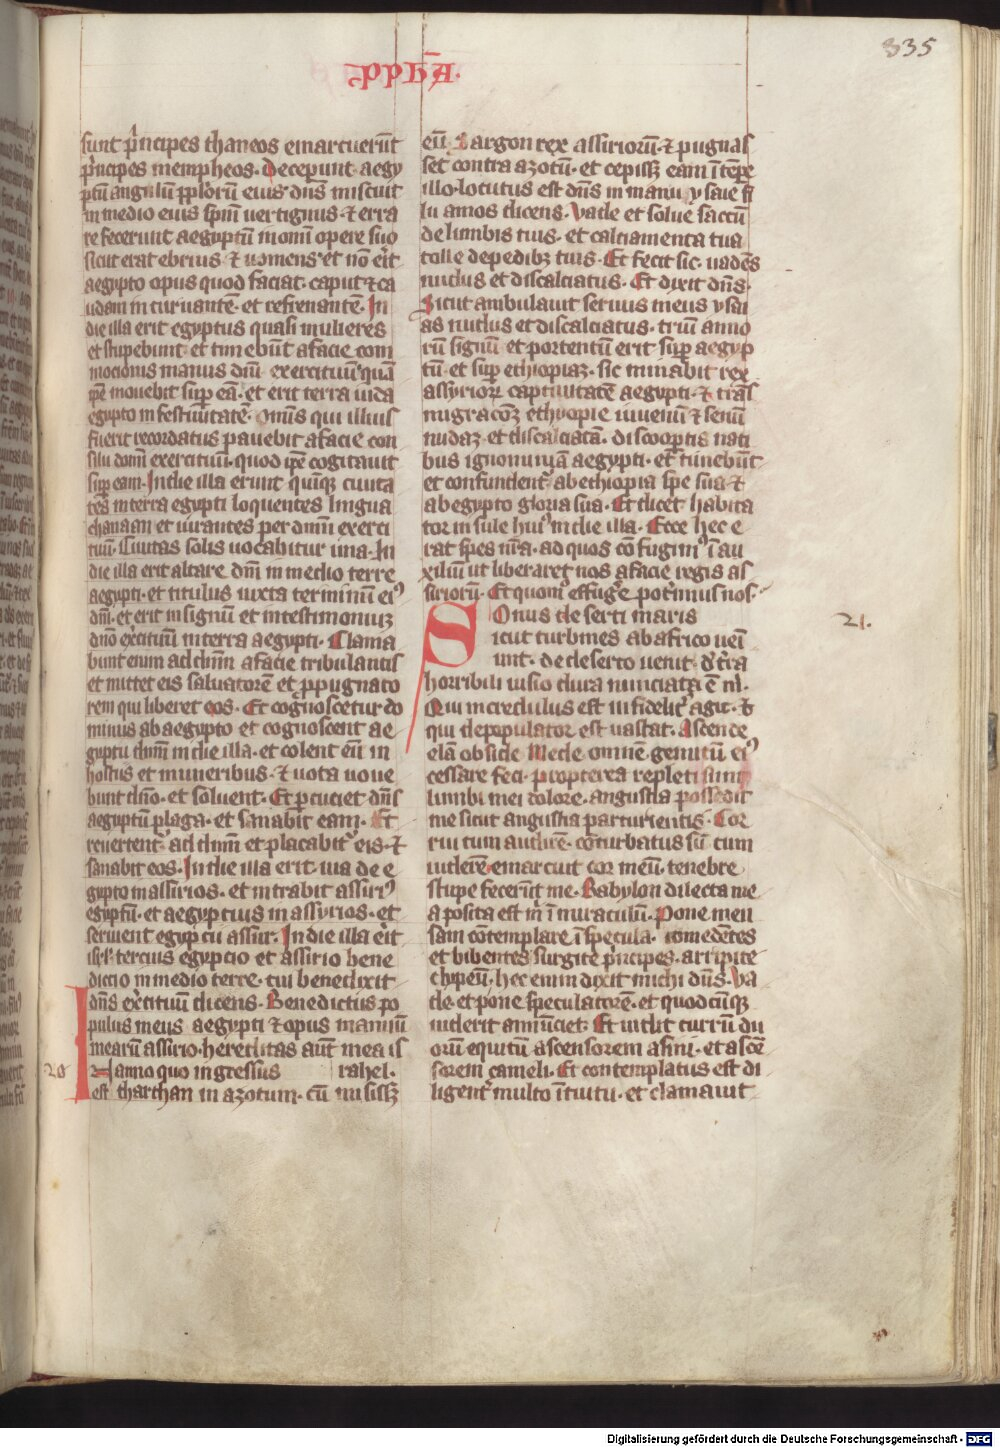 335
PPHA.
sunt p̄ncipes thaneos emarcuerūt
p̄ncipes mempheos. Decepunt aegy
ptū angulū pplorū eius dn̄s miscuit
in medio eius spm̄ uertiginis. ⁊ erra
re fecerunt aegyptū in omī opere suo
sicut erat ebrius ⁊ uomens et nō erit
aegypto opus quod faciat. caput ⁊ ca
udam incuruantē. et refrenantē. In
die illa erit egyptus quasi mulieres
et stupebunt et timebunt a facie com
mocionis manus dn̄i exercituū quā
ip̄e mouebit sup̄ eā. et erit terra iuda
egypto in festiuitatē. omnis qui illius
fuerit recordatus pauebit a facie con
silii domī exercituū. quod ip̄e cogitauit
sup̄ eam. In die illa erunt quinq; ciuita
tes in terra egypti loquentes lingua
chanaan et iurantes per dominū exerci
tuū. Ciuitas solis uocabitur una. In
die illa erit altare dn̄i in medio terre
aegypti. et titulus iuxta terminū eiꝰ
dn̄i. et erit in signū et in testimoniuꝫ
dn̄o exc̄ituū in terra aegypti. Clama
bunt enim ad dn̄m a facie tribulantis
et mittet eis saluatorē et ppugnato
rem qui liberet eos. Et cognoscetur do
minus ab aegypto et cognoscent ae
gyptii dn̄m in die illa. et colent eū in
hostiis et muneribus. ⁊ uota uoue
bunt dn̄o. et soluent. Et p̄cuciet dn̄s
aegyptū plaga. et sanabit eam. Et
reuertent᷑ ad dn̄m et placabit᷑ eis. ⁊
sanabit eos. In die illa erit uia de e
gypto in assirios. et intrabit assiriꝰ
egyptū. et aegyptius in assyrios. et
seruient egyptii assur. In die illa erit
isrl̄. tercius egyptio et assirio bene
dictio in medio terre. cui benedixit
dn̄s exc̄ituū dicens. Benedictus po
pulus meus aegypti ⁊ opus manuū
mearū assirio. hereditas aūt mea is
rahel.
20
In anno quo ingressus
est tharthan in azotum. cū misissꝫ
eū Sargon rex assiriorū. ⁊ pugnas
set contra azotū. et cepissꝫ eam ī tēpe
illo. locutus est dn̄s in manu ysaie fi
lii amos dicens. Vade et solue saccū
de lumbis tuis. et calciamenta tua
tolle de pedibꝫ tuis. Et fecit sic. uadēs
nudus et discalciatus. Et dixit dn̄s.
Sicut ambulauit seruus meus ysai
as nudus et discalciatus. triū anno
rū signū et portentū erit sup̄ aegyp
tū. et sup̄ ethiopiaꝫ. sic minabit rex
assyrioꝝ captiuitatē aegypti. ⁊ trās
migracōꝫ ethyopie iuuenū ⁊ senū
nudaꝫ et discalciatā. discooptis nati
bus ignominiā aegypti. et timebūt
et confundent᷑ ab ethiopia spe sua. ⁊
ab egypto gloria sua. Et dicet habita
tor insule huiꝰ in die illa. Ecce hec e
rat spes nr̄a. ad quos cōfugimꝰ ī au
xiliū ut liberaret nos a facie regis as
siriorū. Et quomō effug̃e pot̃imus nos.
21.
Onus deserti maris
icut turbines ab africo ueī
unt. de deserto uenit de t̃ra
horribili uisio dura nunciata ē m̄.
Qui incredulus est infidelit̃ agit. ⁊
qui depopulator est uastat. Ascende
elā obside Mede. omnē gemitū eiꝰ
cessare feci. propterea repleti sunt
lumbi mei dolore. angustia possedit
me sicut angustia parturientis. Cor
rui cum audirē. cōturbatus sū cum
uiderē. emarcuit cor meū. tenebre
stupefecerūt me. Babylon dilecta me
a posita est m̄ ī miraculū. Pone men
sam cōtemplare ī specula. comedētes
et bibentes surgite p̄ncipes. arripite
clypeū. hec enim dixit michi dn̄s. Va
de. et pone speculatorē. et quodcūq;
uiderit annūciet. Et uidit currū du
orū equitū ascensorem asini. et ascē
sorem cameli. Et contemplatus est di
ligent᷑ multo ītuitu. et clamauit
Digitalisierung gefördert durch die Deutsche Forschungsgemeinschaft - DFG